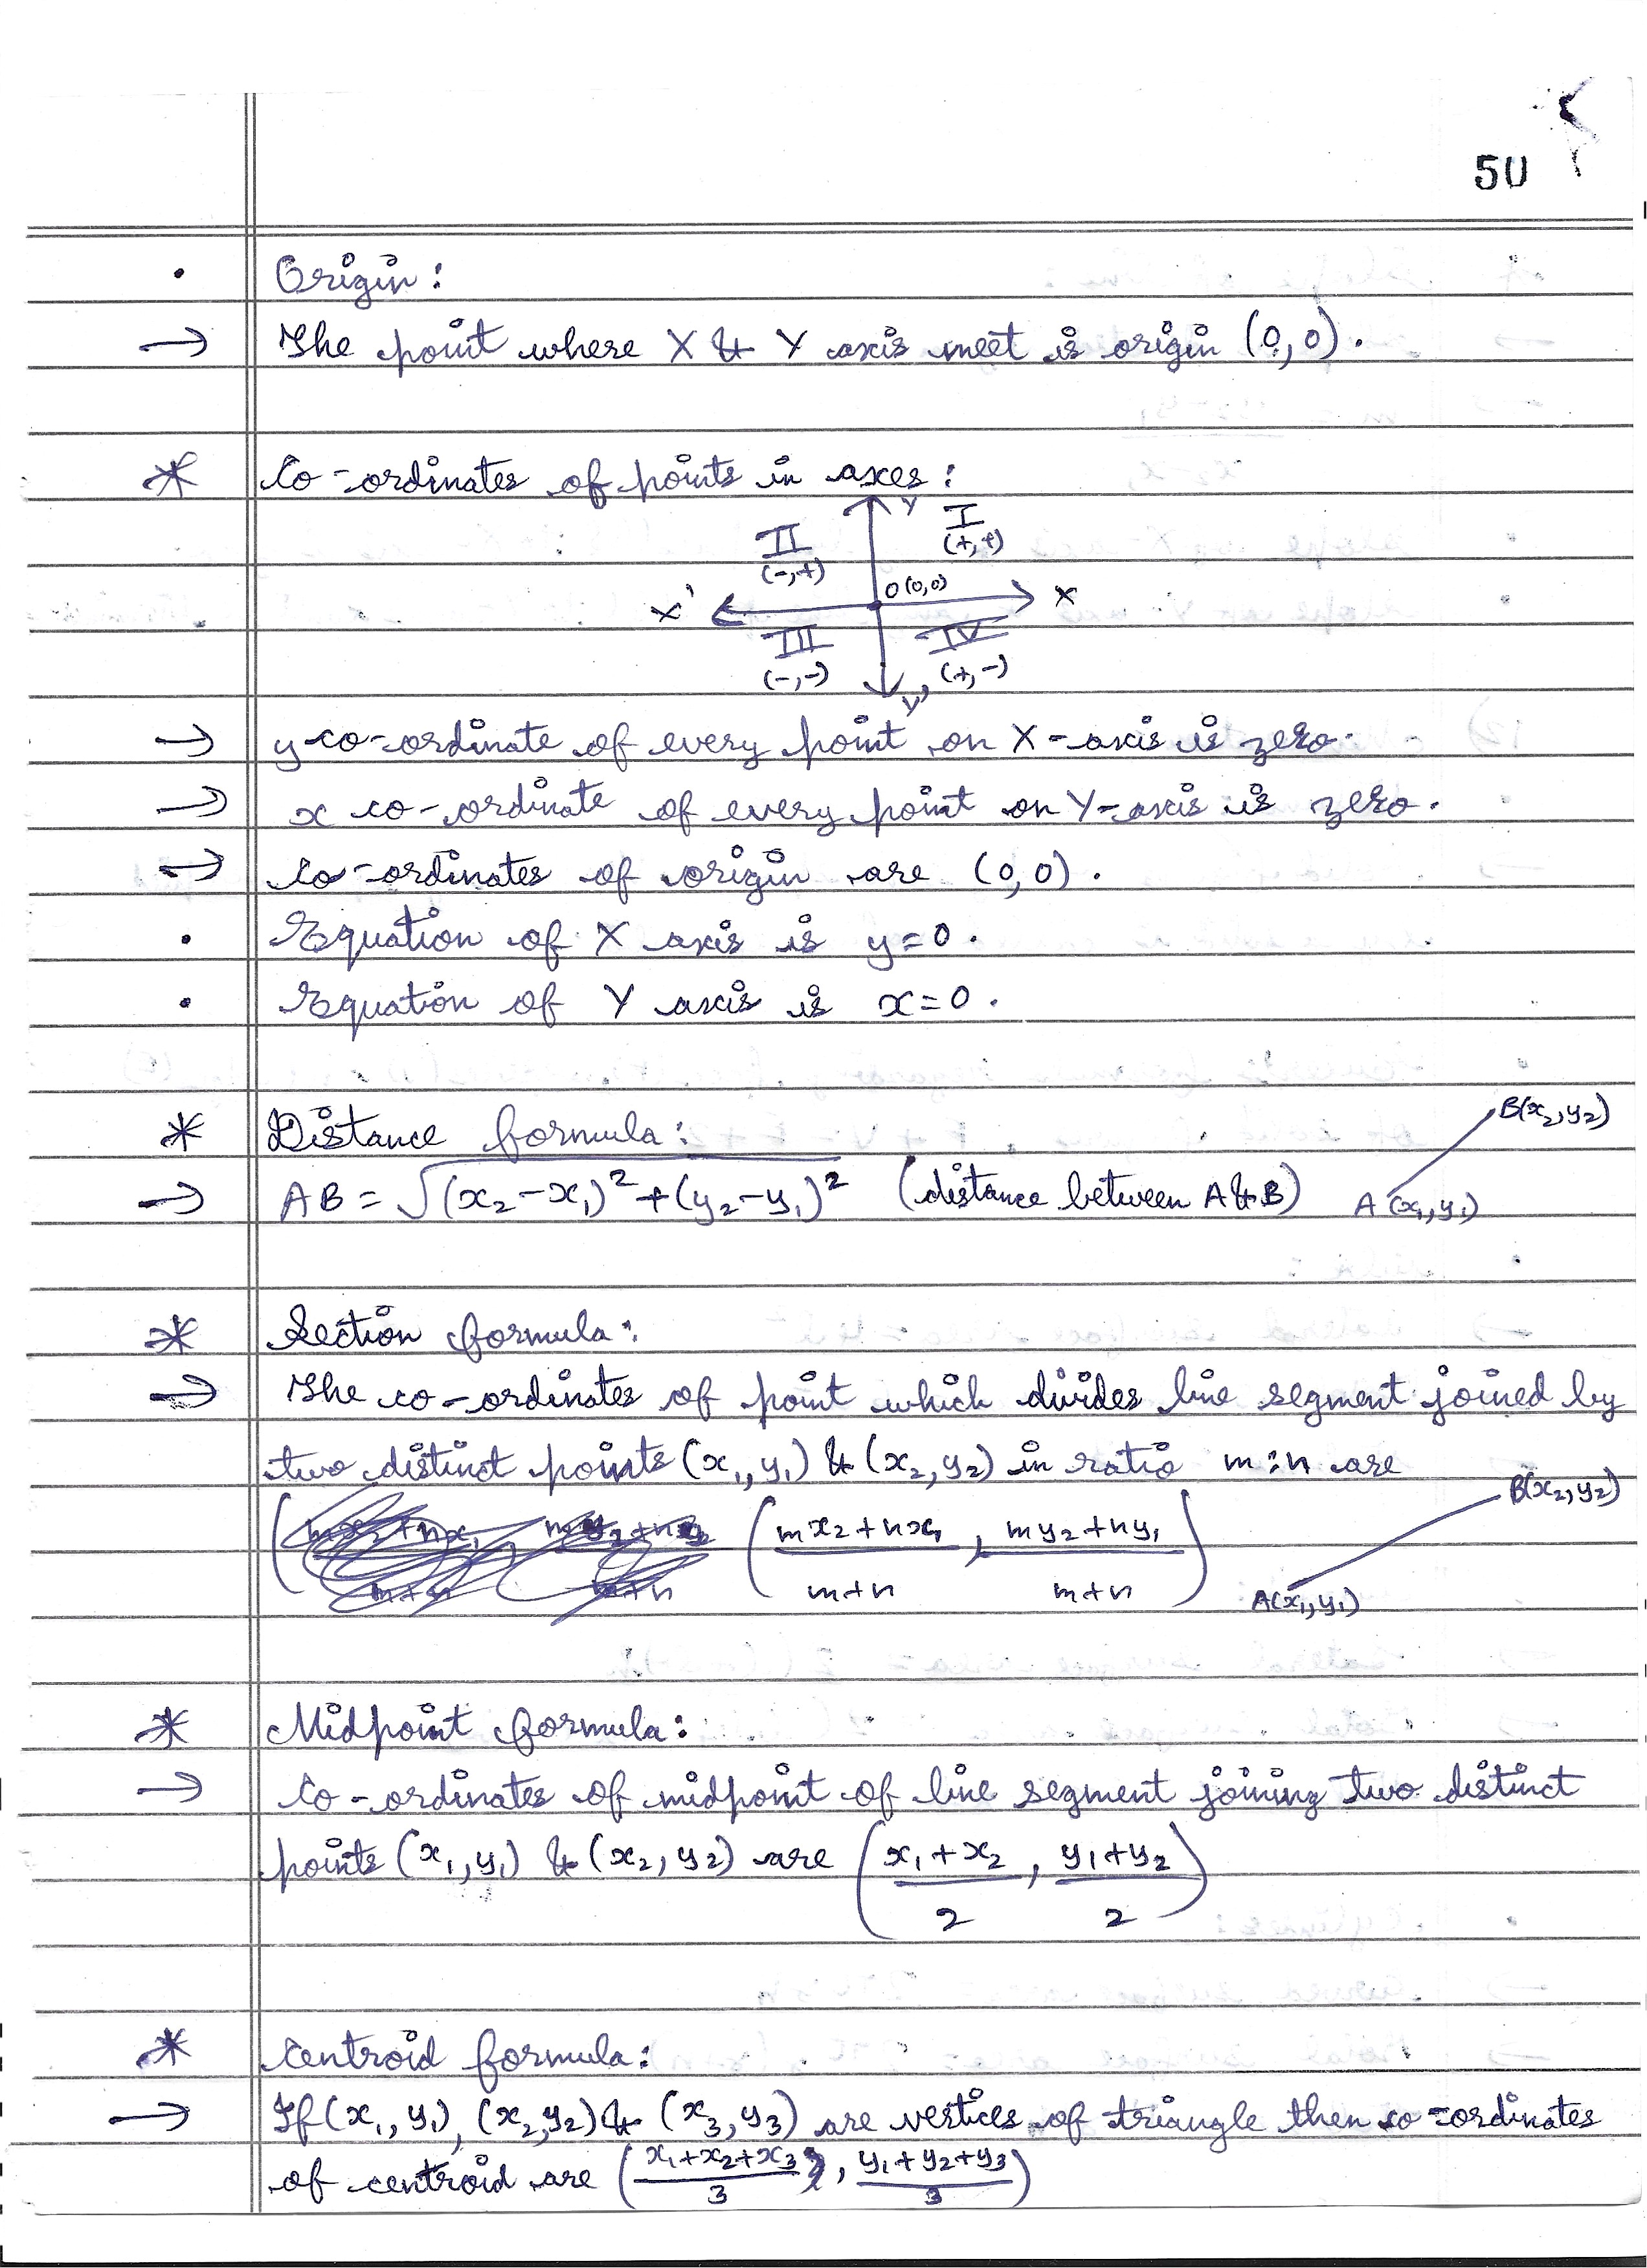 50
• Origin:
→ The point where X & Y axis meet is origin (0,0).
* Co-ordinates of points in axes:
Y
II I
(-,+) (+,+)
O(0,0)
X' X
III IV
(-,-) (+,-)
Y'
→ y co-ordinate of every point on X-axis is zero.
→ x co-ordinate of every point on Y-axis is zero.
→ Co-ordinates of origin are (0,0).
• Equation of X axis is y=0.
• Equation of Y axis is x=0.
* Distance formula:
B(x₂,y₂)
→ AB = √(x₂-x₁)²+(y₂-y₁)² (distance between A & B) A(x₁,y₁)
* Section formula:
→ The co-ordinates of point which divides line segment joined by
two distinct points (x₁,y₁) & (x₂,y₂) in ratio m:n are
B(x₂,y₂)
(mx₂+nx₁/m+n, my₂+ny₁/m+n)
A(x₁,y₁)
* Midpoint formula:
→ Co-ordinates of midpoint of line segment joining two distinct
points (x₁,y₁) & (x₂,y₂) are (x₁+x₂/2, y₁+y₂/2)
* Centroid formula:
→ If (x₁,y₁), (x₂,y₂) & (x₃,y₃) are vertices of triangle then co-ordinates
of centroid are (x₁+x₂+x₃/3, y₁+y₂+y₃/3)